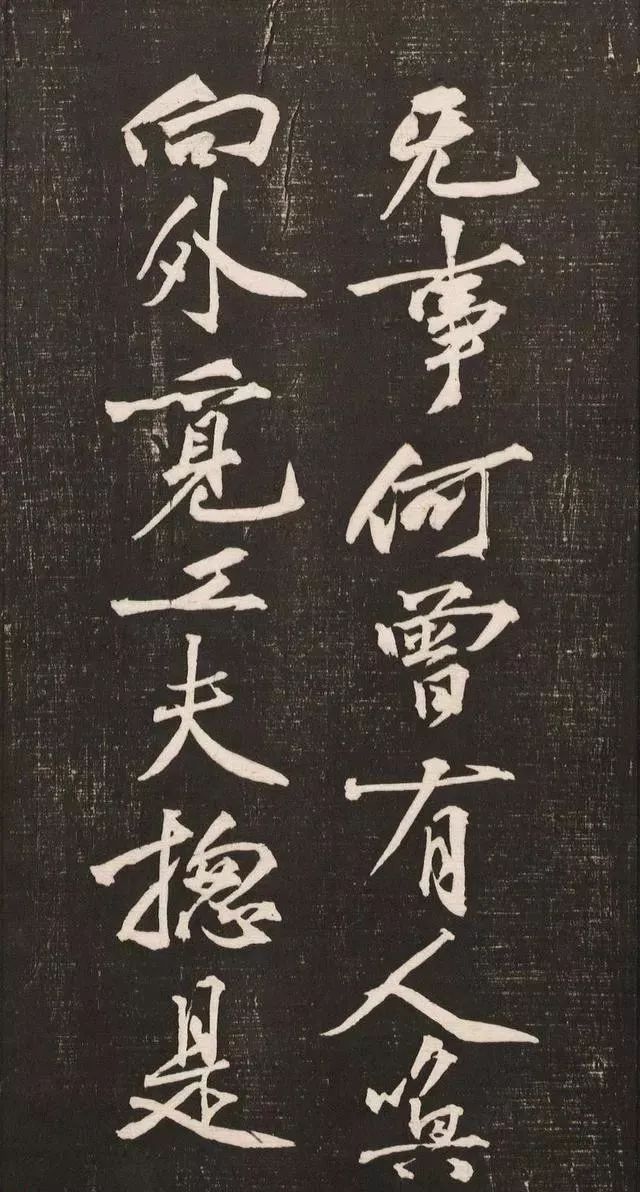 无事何曾有人
向外覓工夫摠是